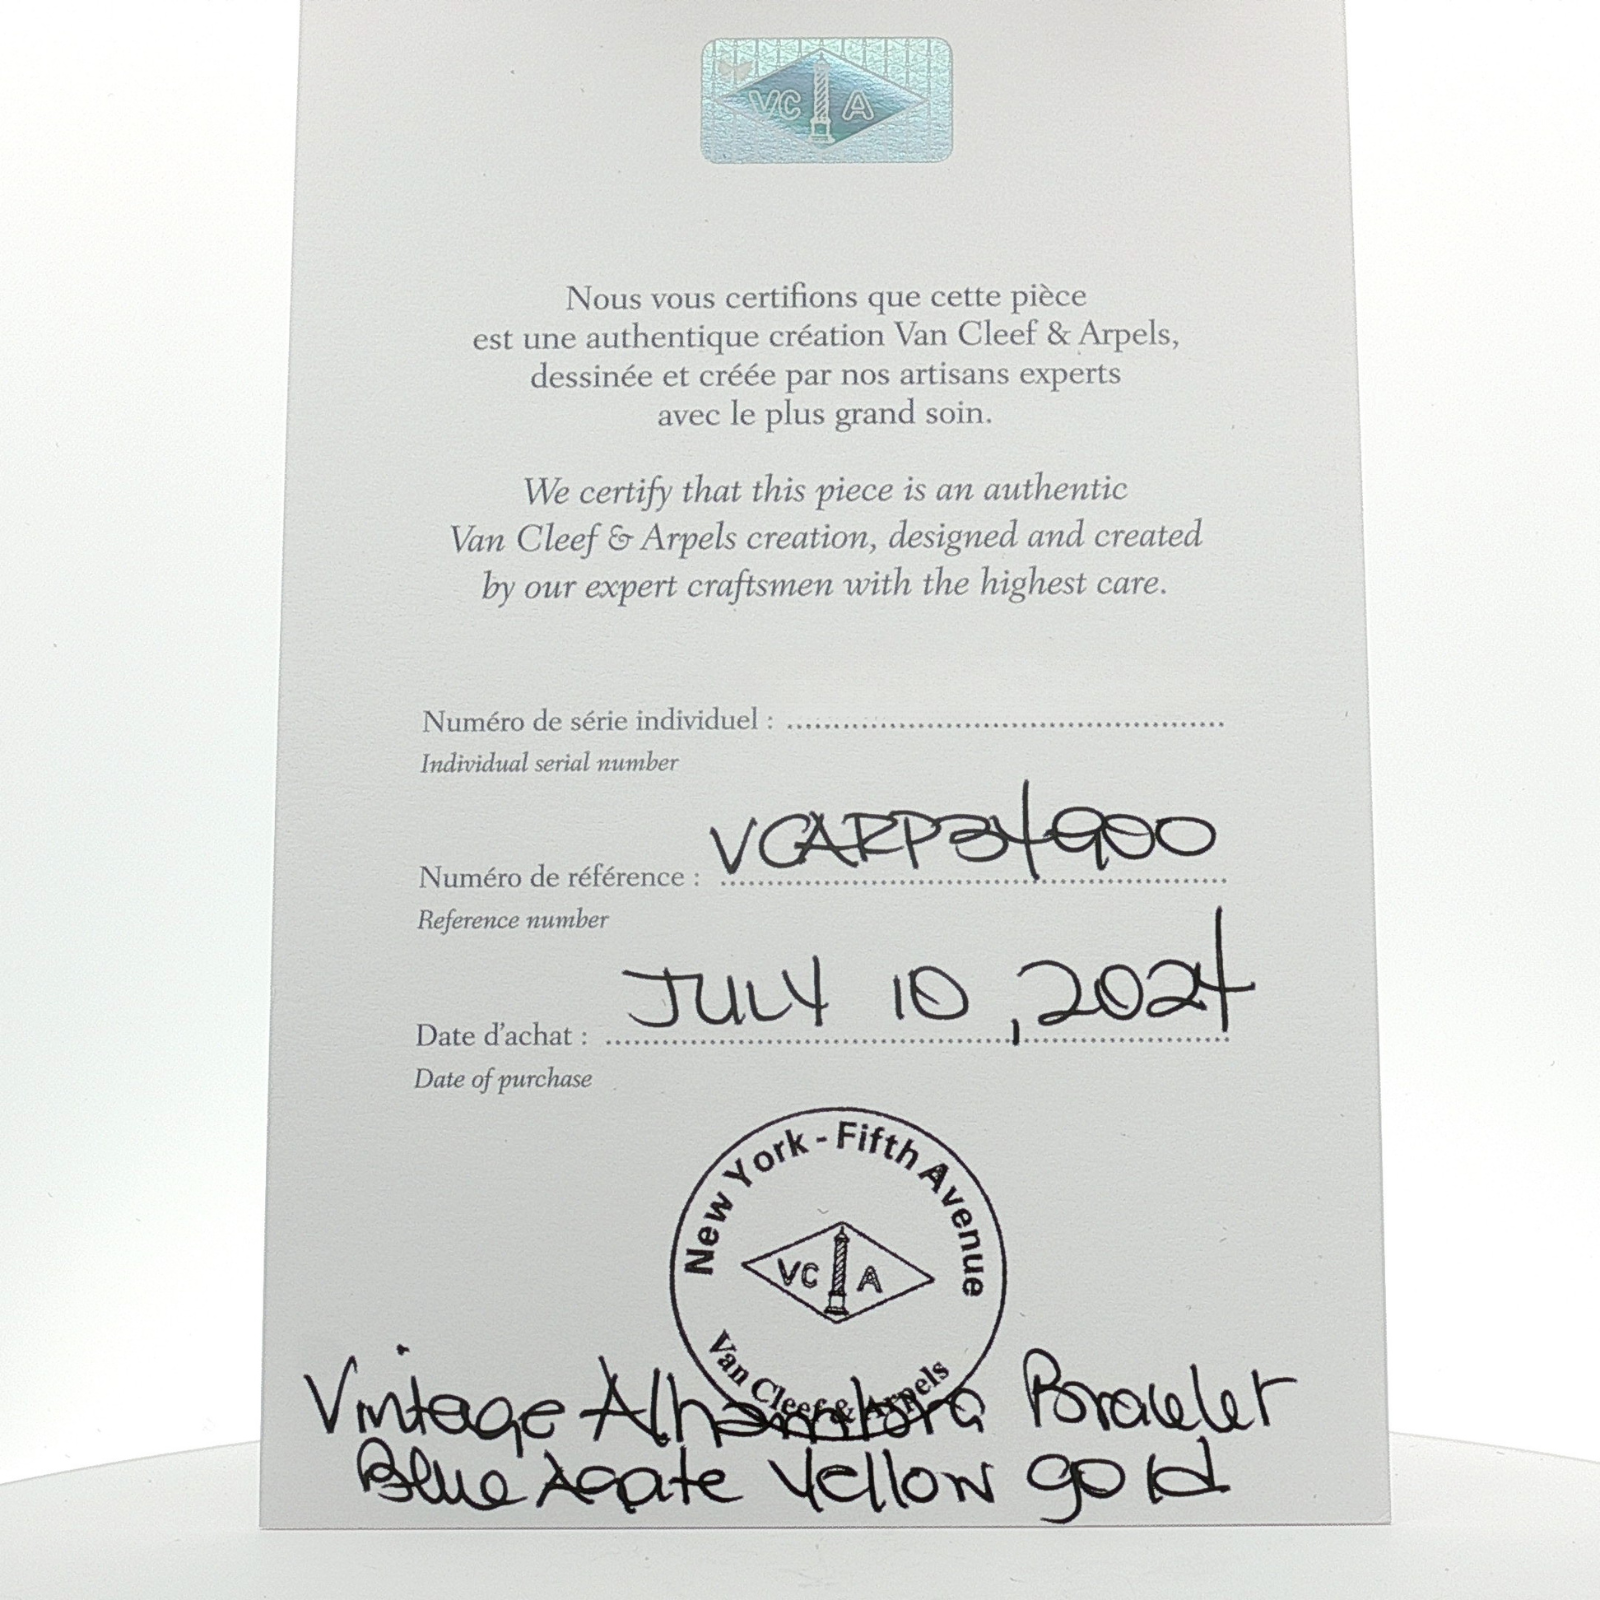 VC A
Nous vous certifions que cette pièce
est une authentique création Van Cleef & Arpels,
dessinée et créée par nos artisans experts
avec le plus grand soin.
We certify that this piece is an authentic
Van Cleef & Arpels creation, designed and created
by our expert craftsmen with the highest care.
Numéro de série individuel :
Individual serial number
Numéro de référence : VCARP34900
Reference number
Date d'achat : JULY 10, 2024
Date of purchase
New York - Fifth Avenue
VC A
Van Cleef & Arpels
Vintage Alhambra Bracelet
Blue Agate Yellow gold